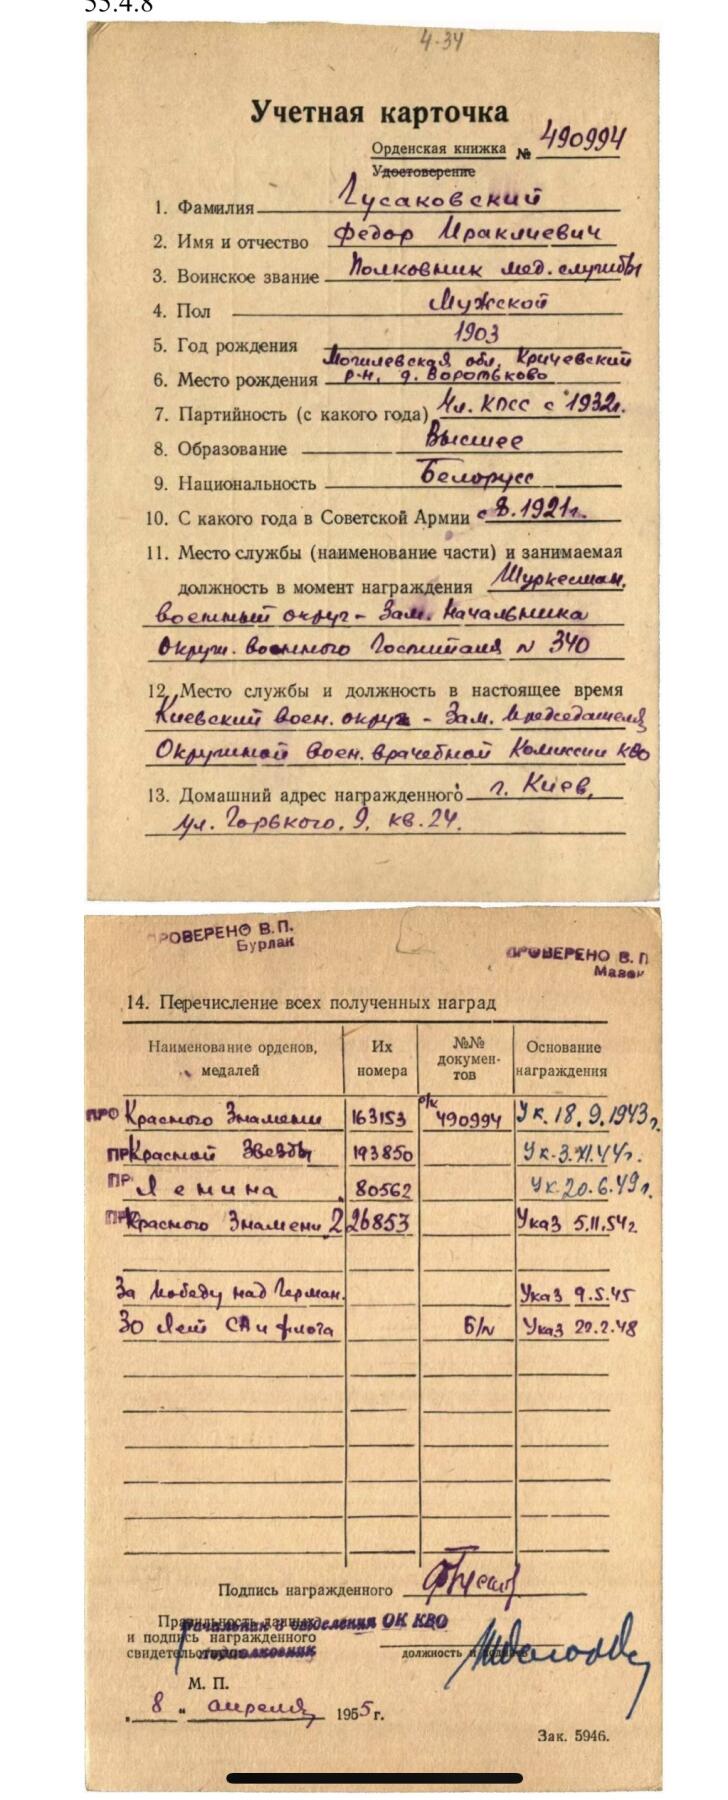 55.4.8
4-34
Учетная карточка
Орденская книжка № 490994
Удостоверение
1. Фамилия Гусаковский
2. Имя и отчество Федор Ираклиевич
3. Воинское звание Полковник мед. службы
4. Пол Мужской
5. Год рождения 1903
Могилевская обл. Кричевский
6. Место рождения р-н, д. Воротьково
7. Партийность (с какого года) Чл. КПСС с 1932г.
8. Образование Высшее
9. Национальность Белорусс
10. С какого года в Советской Армии с 8.1921г.
11. Место службы (наименование части) и занимаемая
должность в момент награждения Туркестан.
военный округ - Зам. Начальника
Окружн. военного Госпиталя N 340
12. Место службы и должность в настоящее время
Киевский воен. округ - Зам. Председателя
Окружной воен. врачебной Комиссии КВО
13. Домашний адрес награжденного г. Киев,
ул. Горького. 9. кв. 24.
ПРОВЕРЕНО В.П.
Бурлак
ПРОВЕРЕНО В.П
Мазен
14. Перечисление всех полученных наград
Наименование орденов, Их №№ Основание
медалей номера докумен- награждения
тов
ПРО Красного Знамени 163153 о/к 490994 Ук. 18.9.1943г.
ПР Красной Звезды 193850 Ук. 3.XI.44г.
ПР Ленина 80562 Ук. 20.6.49г.
ПР Красного Знамени 2 26853 Указ 5.11.54г
За Победу над Герман. Указ 9.5.45
30 лет СА и флота Б/N Указ 22.2.48
Подпись награжденного
Правильность данных
Начальник отделения ОК КВО
и подпись награжденного
свидетельствую
подполковник
должность и подпись
М. П.
„ 8 " апреля 1955 г.
Зак. 5946.